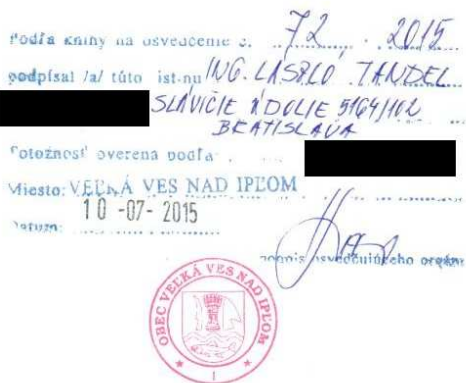 Podľa knihy na osvedčenie č. 72 - 2015
podpísal /a/ túto listinu ING. LÁSZLÓ TANDEL
SLÁVIČIE ÚDOLIE 5164/102
BRATISLAVA
Totožnosť overená podľa
Miesto: VEĽKÁ VES NAD IPĽOM
Dátum: 10 -07- 2015
podpis osvedčujúceho orgánu
OBEC VEĽKÁ VES NAD IPĽOM
1